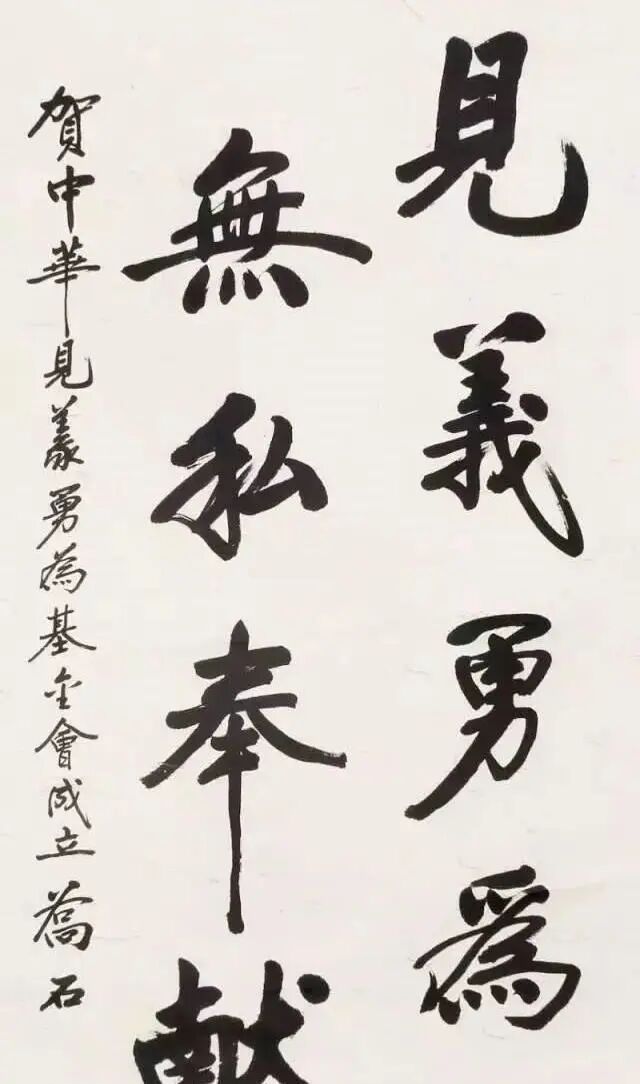 見義勇為
無私奉献
賀中華見義勇為基金會成立 喬石